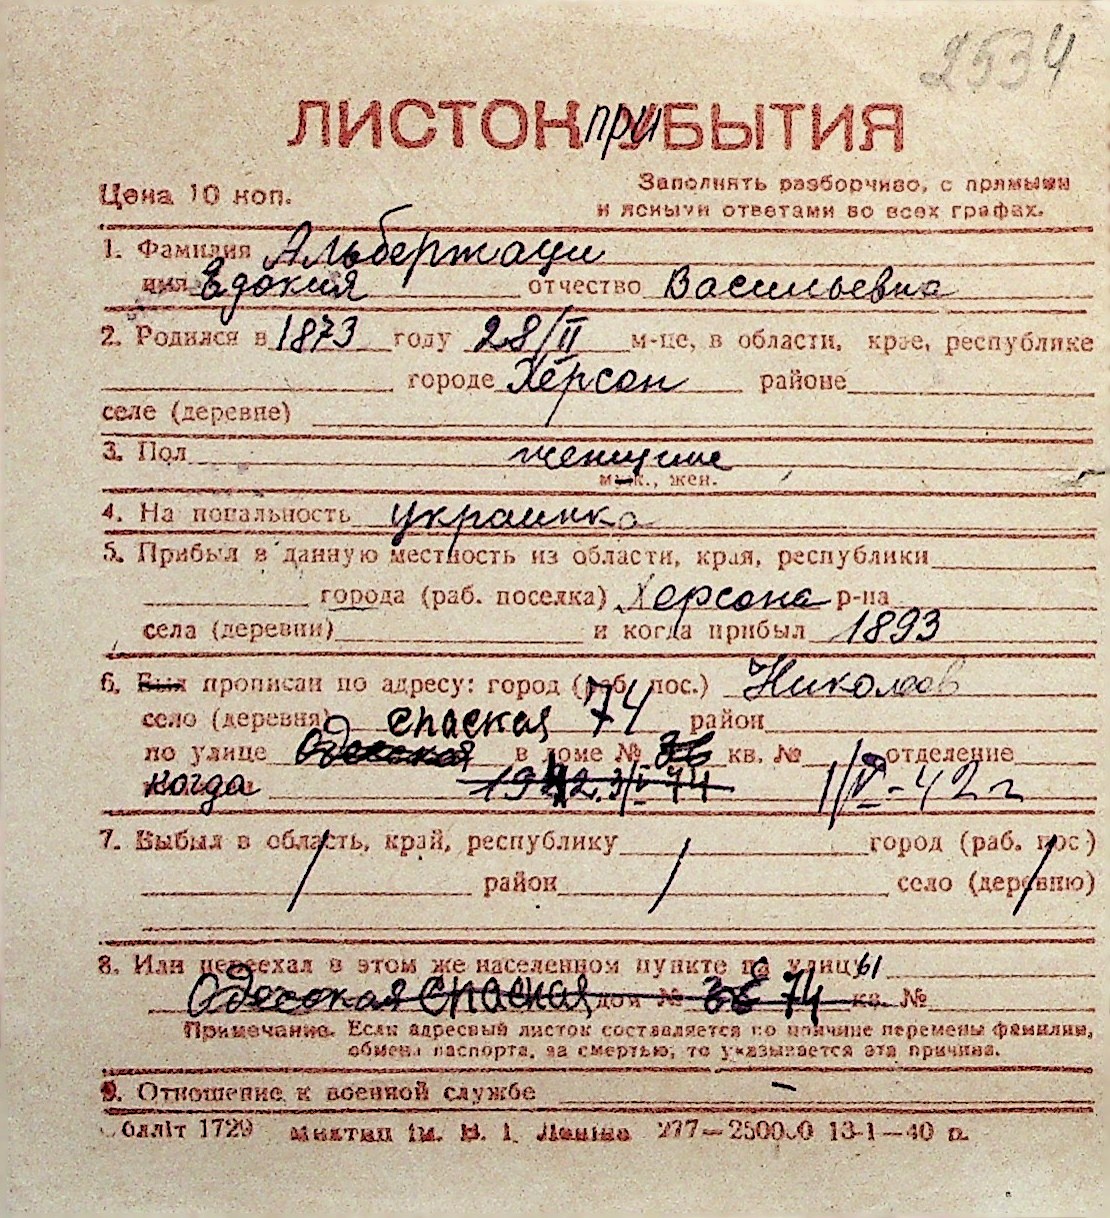 2534
ЛИСТОК при УБЫТИЯ
Цена 10 коп.
Заполнять разборчиво, с прямыми
и ясными ответами во всех графах.
1. Фамилия Альбержаци
имя Евдокия отчество Васильевна
2. Родился в 1873 году 28/II м-це, в области, крае, республике
городе Херсон районе
селе (деревне)
3. Пол женщине
муж., жен.
4. Национальность украинка
5. Прибыл в данную местность из области, края, республики
города (раб. поселка) Херсона р-на
села (деревни) и когда прибыл 1893
6. Был прописан по адресу: город (раб. пос.) Николаев
село (деревня) спаская 74 район
по улице Одесская в доме № 36 кв. № отделение
когда 1942 3/V 74 1/V-42 г
7. Выбыл в область, край, республику город (раб. пос.)
район село (деревню)
8. Или переехал в этом же населенном пункте на улицу 61
Одесская спаская дом № 36 74 кв. №
Примечание. Если адресный листок составляется по причине перемены фамилии,
обмена паспорта, за смертью, то указывается эта причина.
9. Отношение к военной службе —
Обллiт 1729 iм. В. I. Ленiна 277—250000 13-1—40 р.